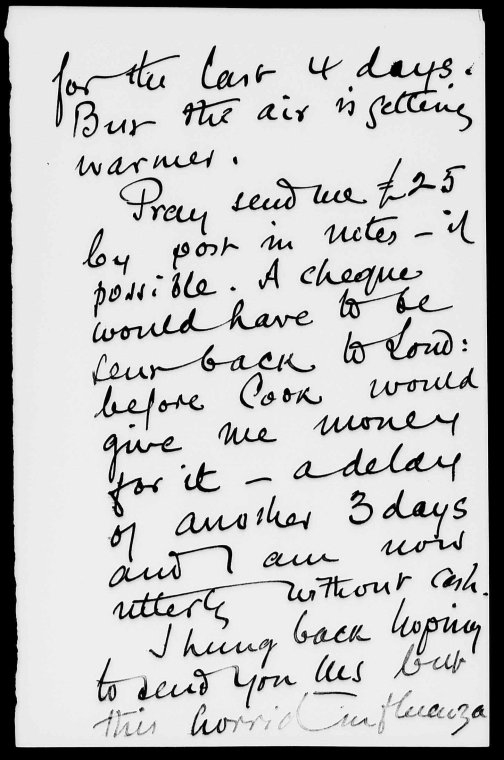 for the last 4 days.
But the air is getting
warmer.
Pray send me £25
by post in notes - if
possible. A cheque
would have to be
sent back to Lond:
before Cook would
give me money
for it - a delay
of another 3 days
and I am now
utterly without cash.
I hung back hoping
to send you MS but
this horrid influenza